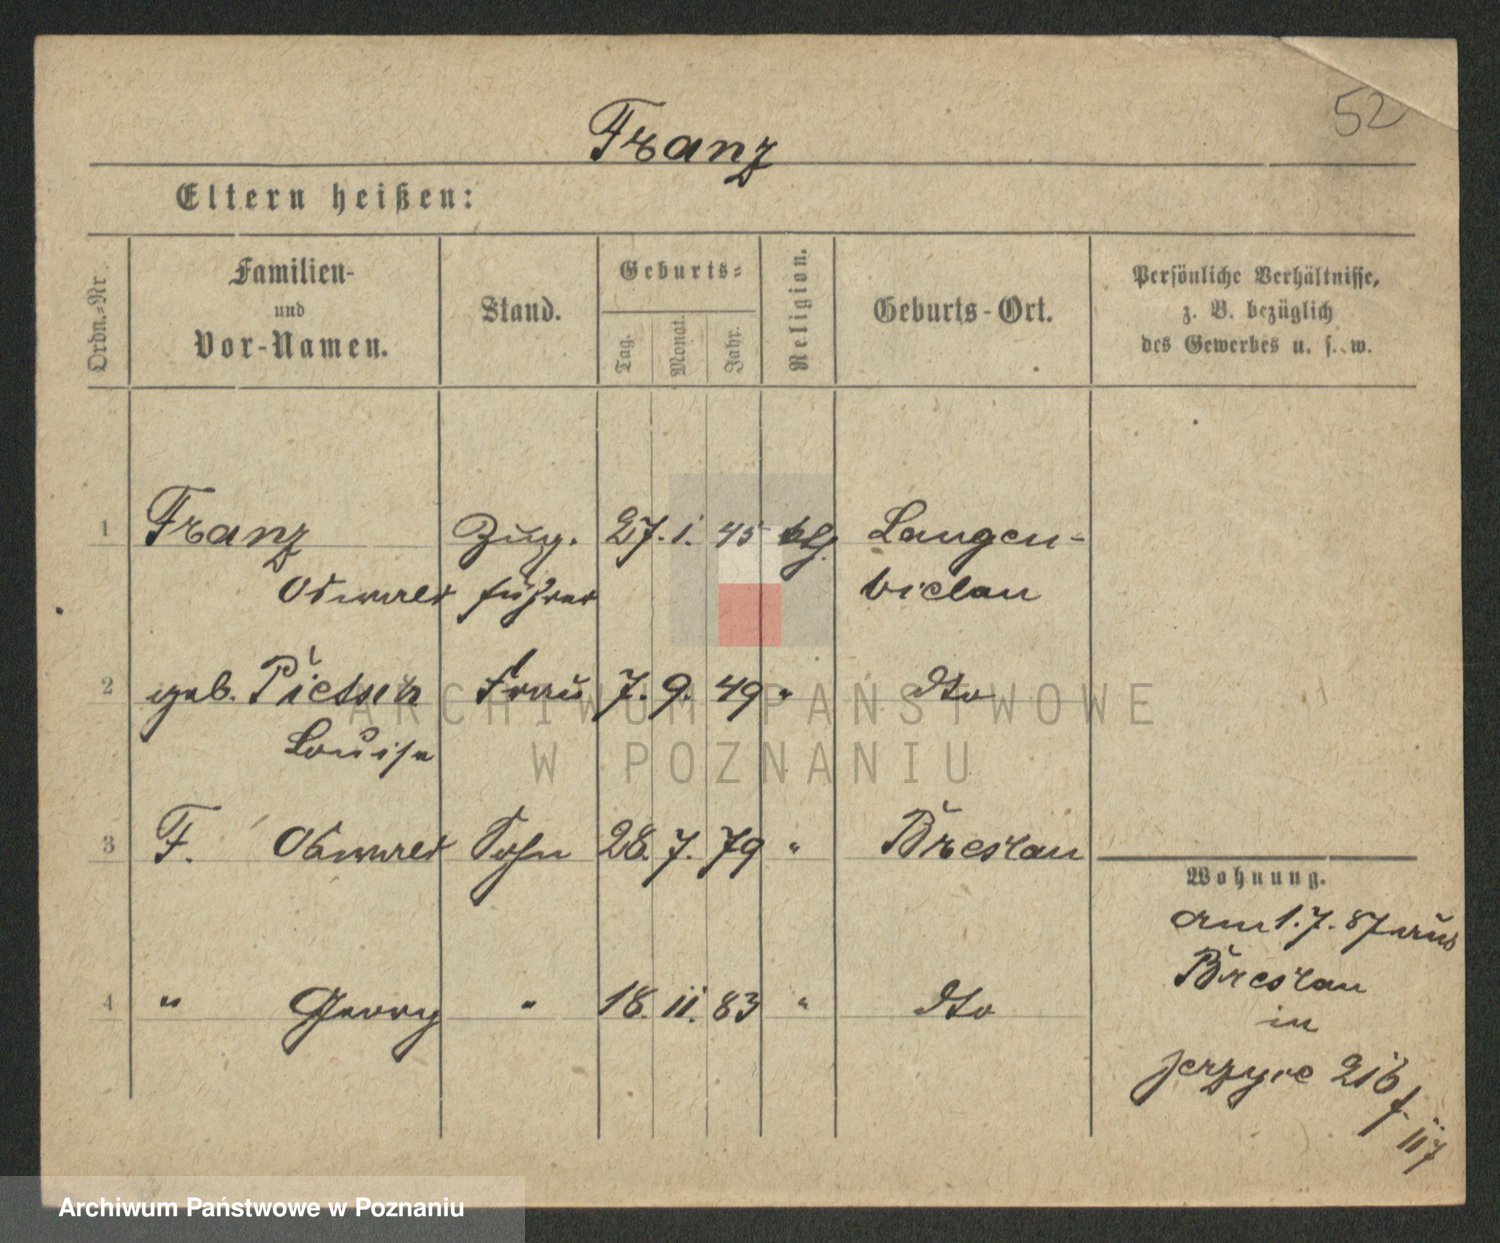 52
Franz
Eltern heißen:
Ordn.-Nr.
Familien-
und
Vor-Namen.
Stand.
Geburts-
Tag.
Monat.
Jahr.
Religion.
Geburts-Ort.
Persönliche Verhältnisse,
z. B. bezüglich
des Gewerbes u. s. w.
1 Franz Zug. 27. 1. 45 Langen-
Oswald führer bielau
2 geb. Frau 7. 9. 49 " dto
Louise
3 F. Oswald Sohn 28. 7. 79 " Breslau
4 " Georg " 18. 11. 83 " dto
Wohnung.
am 1. 7. 87 aus
Breslau
in
ARCHIWUM PAŃSTWOWE
W POZNANIU
Archiwum Państwowe w Poznaniu